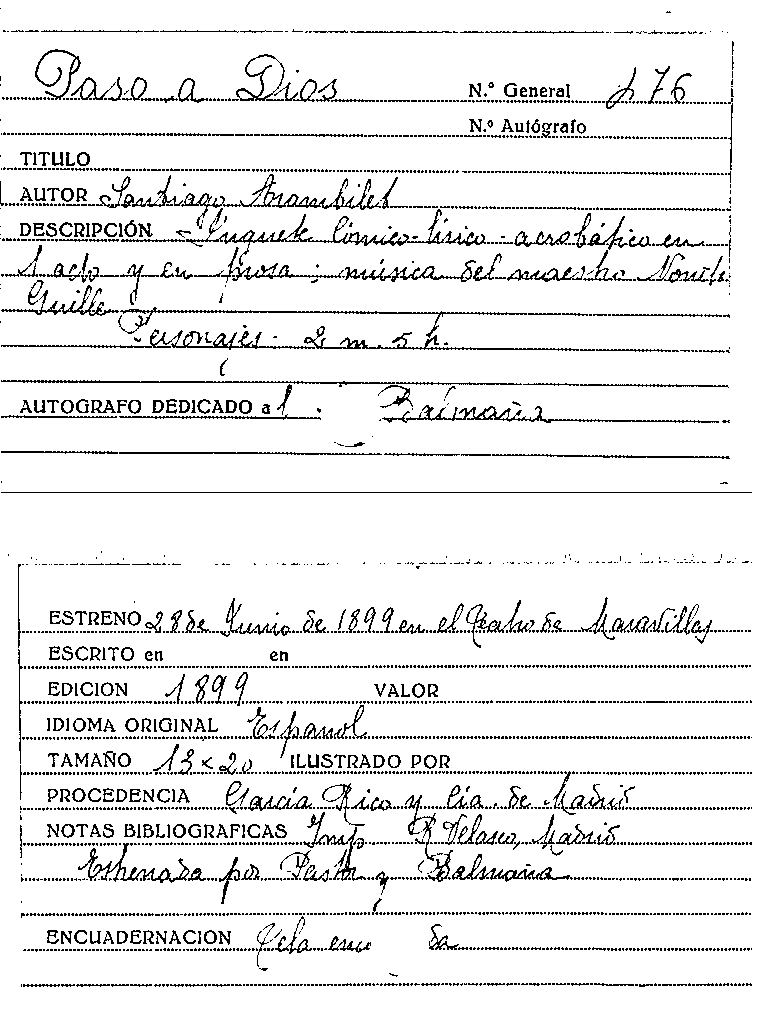 Paso a Dios N.º General 476
N.º Autógrafo
TITULO
AUTOR Santiago Arambilet
DESCRIPCIÓN Juguete Cómico-lírico-acrobático en
1 acto y en prosa; música del maestro
Guille
Personajes - 2 m. 5 h.
AUTOGRAFO DEDICADO a l. Balmaña
ESTRENO 28 de Junio de 1899 en el Teatro de Maravillas
ESCRITO en en
EDICION 1899 VALOR
IDIOMA ORIGINAL Español
TAMAÑO 13 x 20 ILUSTRADO POR
PROCEDENCIA García Rico y Cía. de Madrid
NOTAS BIBLIOGRAFICAS Imp R Velasco, Madrid
Estrenada por Pastor y Balmaña
ENCUADERNACION Tela